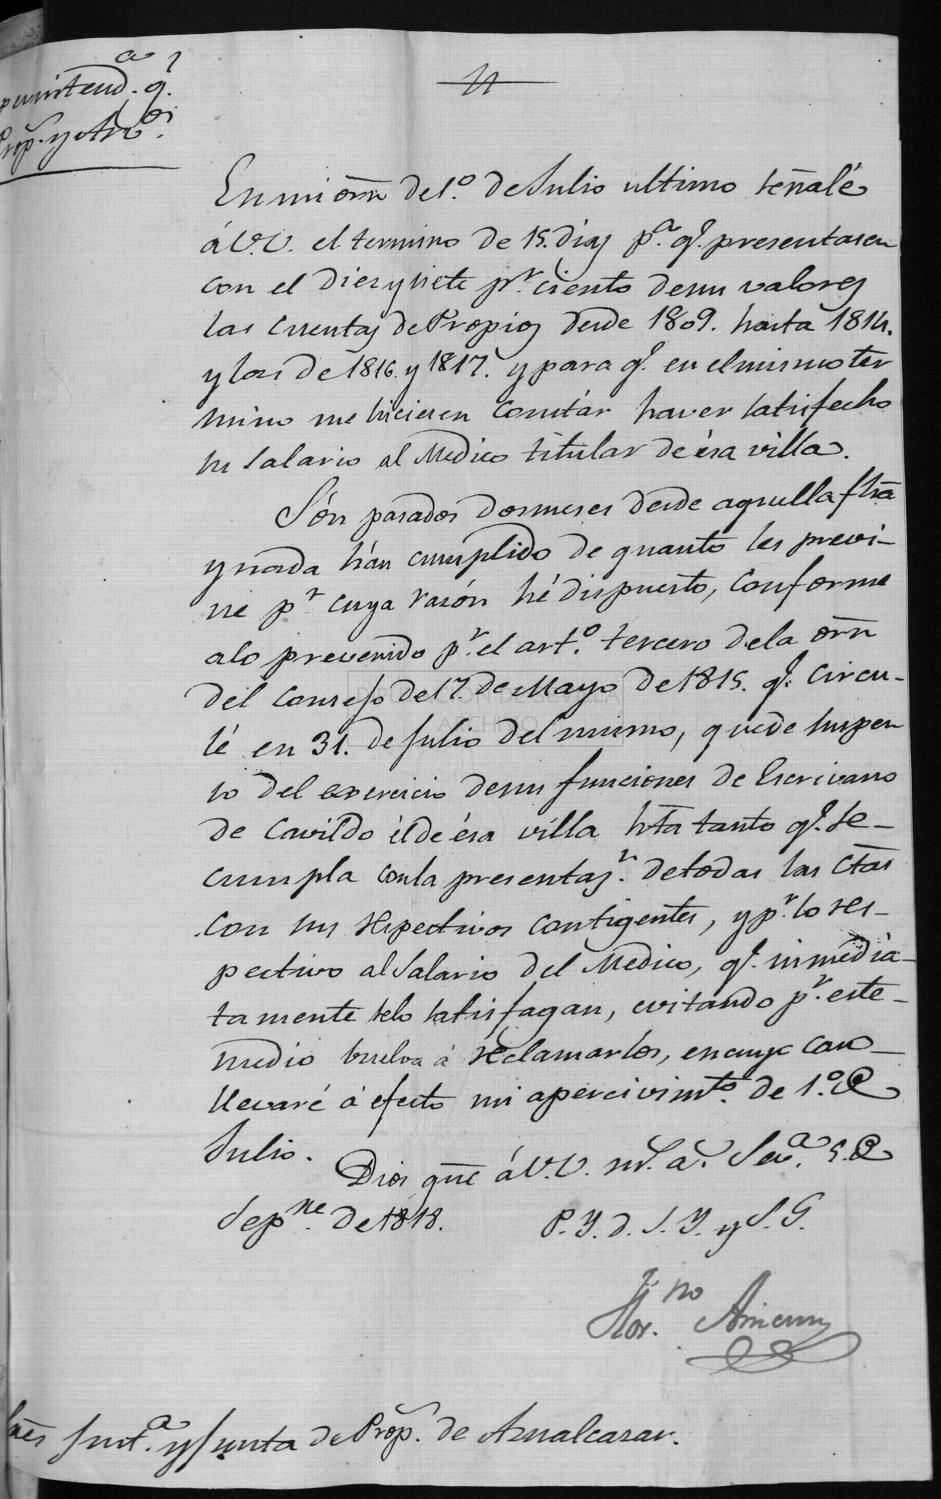 Prop.s y Arb.os
En mi orn̄ de 1.o de Julio ultimo señalé
á V.V. el termino de 15. dias p.a q.e presentasen
con el diez y siete p.r ciento de sus valores
las Cuentas de Propios desde 1809. hasta 1814.
y las de 1816. y 1817. y para q.e en el mismo ter
mino me hiciesen constár haver satisfecho
su salario al Medico titular de ésa villa.
Són pasados dos meses desde aquella fhā
y nada hán cumplido de quanto les previ-
ne p.r cuya razón hé dispuesto, conforme
a lo prevenido p.r el art.o tercero de la orn̄
del Consejo de 17. de Mayo de 1815. q.e circu-
lé en 31. de Julio del mismo, quede suspen
so del exercicio de sus funciones de Escrivano
de Cavildo él de ésa villa hta tanto q.e se-
cumpla con la presentaz.n de todas las Ctās
con sus respectivos contigentes, y p.r lo res-
pectivo al Salario del Medico, q.e inmédia-
tamente selo satisfagan, evitando p.r este-
medio buelva á réclamarlos, en cuyo caso-
llevaré á efecto mi apercivim.to de 1.o de
Julio.
Dios gūe á V.V. m.s a.s Sev.a 5. de
Sep.re de 1818.
P. Y. d. S. Y. y S. G.
y Junta de Prop.s de Aznalcazar.